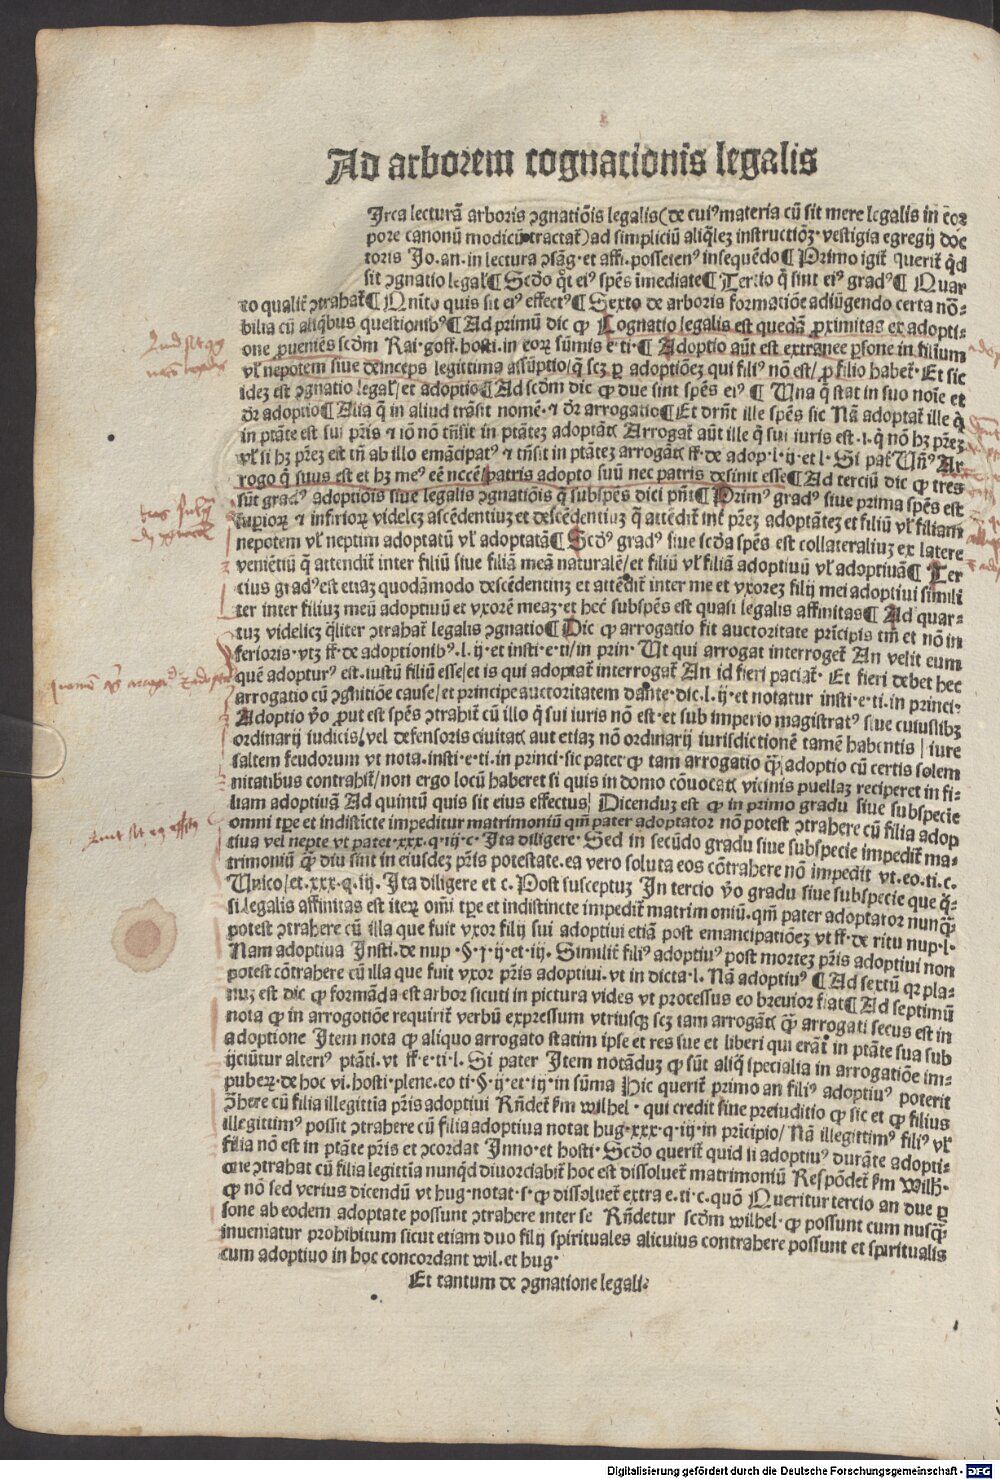 Ad arborem cognationis legalis
Irca lecturā arboris ꝯgnatiōis legalis (de cuiꝰ materia cū sit mere legalis in cor
pore canonū modicū tractaƭ) ad simpliciū aliq̄leꝫ instructiōꝫ · vestigia egregij doc
toris Jo. an. in lectura ꝯsāg · et affi. posseteꝰ insequēdo ¶ Primo igiƭ queriƭ qͥd
sit ꝯgnatio legaƚ ¶ Scďo qͫt eiꝰ spēs īmediate ¶ Tertio qͥ sint eiꝰ gradꝰ ¶ Quar
to qualiƭ ꝯtrahaƭ ¶ Quīto quis sit eiꝰ effectꝰ ¶ Sexto de arboris formatiōe adiūgendo certa nō-
bilia cū aliqͥbus questionibꝰ ¶ Ad primū dic ꝙ Cognatio legalis est quedā ꝓximitas ex adopti-
one ꝓueniēs scďm Rai · goff. hosti. in eorꝝ sūmis e · ti · ¶ Adoptio aūt est extranee ꝑsone in filium
vƚ nepotem siue deinceps legittima assūptio / q̄ scꝫ ꝑ adoptiōeꝫ qui filiꝰ nō est / ꝓ filio habeƭ · Et sic
ideꝫ est ꝯgnatio legaƚ / et adoptio ¶ Ad scďm dic ꝙ due sint spēs eiꝰ ¶ Una q̄ stat in suo noīe et
ďr adoptio ¶ Alia q̄ in aliud trāsit nomē · ⁊ ďr arrogatio ¶ Et dr̄nt ille spēs sic Nā adoptaƭ ille qͥ
in ptāte est sui pr̄is ⁊ iō nō trāsit in ptāteꝫ adoptātꝭ Arrogaƭ aūt ille qͥ sui iuris est · i · qͥ nō hꝫ pr̄eꝫ
vƚ si hꝫ pr̄eꝫ est tn̄ ab illo emācipatꝰ ⁊ trāsit in ptāteꝫ arrogātꝭ ff · de adop · l · ij · et l · Si paƭ Un̄ꝰ Ar
rogo qͥ suus est et hꝫ meꝰ eē necē patris adopto suū nec patris desinit esse ¶ Ad terciū dic ꝙ tres
sūt gradꝰ adoptiōis siue legalis ꝯgnatiōis qͥ subspēs dici pn̄t ¶ Primꝰ gradꝰ siue prima spēs est
supiorꝝ ⁊ inferiorꝝ videlcꝫ ascēdentiuꝫ et descēdentiuꝫ q̄ attēdiƭ inƭ pr̄eꝫ adoptāteꝫ et filiū vƚ filiam
nepotem vƚ neptim adoptatū vƚ adoptatā ¶ Scďꝰ gradꝰ siue scďa spēs est collateraliuꝫ ex latere
veniētiū q̄ attendiƭ inter filiū siue filiā meā naturalē / et filiū vƚ filiā adoptiuū vƚ adoptiuā ¶ Ter
cius gradꝰ est etiaꝫ quodāmodo descēdentiuꝫ et attēdiƭ inter me et vxoreꝫ filij mei adoptiui simili
ter inter filiuꝫ meū adoptiuū et vxorē meaꝫ · et hec subspēs est quasi legalis affinitas ¶ Ad quar-
tuꝫ videlicꝫ qͣliter ꝯtrahaƭ legalis ꝯgnatio ¶ Dic ꝙ arrogatio fit auctoritate pricipis tm̄ et nō in
ferioris · vtꝫ ff · de adoptionibꝰ · l · ij · et insti · e · ti / in prin · Ut qui arrogat interrogeƭ An velit eum
quē adopturꝰ est · iustū filiū esse / et is qui adoptaƭ interrogaƭ An id fieri paciaƭ · Et fieri debet hec
arrogatio cū ꝯgnitiōe cause / et principe auctoritatem dante · dic. l. ij · et notatur insti · e · ti. in princi ·
Adoptio v̄o ꝓut est spēs ꝯtrahiƭ cū illo qͥ sui iuris nō est · et sub imperio magistratꝰ siue cuiuslibꝫ
ordinarij iudicis / vel defensoris ciuitatꝭ aut etiaꝫ nō ordinarij iurisdictionē tamē habentis / iure
saltem feudorum vt nota. insti · e · ti. in princi · sic patet ꝙ tam arrogatio qͣꝫ / adoptio cū certis solem
nitatibus contrahiƭ / non ergo locū haberet si quis in domo cōuocatꝭ vicinis puellaꝫ reciperet in fi-
liam adoptiuā Ad quintū quis sit eius effectus / Dicenduꝫ est ꝙ in primo gradu siue subspecie
omni tꝑe et indisticte impeditur matrimoniū qm̄ pater adoptator nō potest ꝯtrahere cū filia adop
tiua vel nepte vt patet · xxx. q · iij · c · Ita diligere · Sed in secūdo gradu siue subspecie impediƭ ma-
trimoniū qͣꝫ diu sint in eiusdeꝫ pr̄is potestate. ea vero soluta eos cōtrahere nō impedit vt. eo. ti. c.
Unico / et. xxx · q. iij. Ita diligere et c. Post susceptuꝫ In tercio v̄o gradu siue subspecie que qͣ-
si legalis affinitas est iterꝝ om̄i tꝑe et indistincte impediƭ matrimoniū. qm̄ pater adoptator nunqͣꝫ
potest ꝯtrahere cū illa que fuit vxor filij sui adoptiui etiā post emancipatiōeꝫ vt ff · de ritu nup · l ·
Nam adoptiua Insti. de nup · §· ij · et · iij. Similiƭ filiꝰ adoptiuꝰ post morteꝫ pr̄is adoptiui non
potest cōtrahere cū illa que fuit vxor pr̄is adoptiui. vt in dicta · l. Nā adoptiuꝰ ¶ Ad sextū qꝛ pla-
nuꝫ est dic ꝙ formāda est arbor sicuti in pictura vides vt processus eo breuior fiat ¶ Ad septimū
nota ꝙ in arrogotiōe requiriƭ verbū expressum vtriusqꝫ scꝫ tam arrogātꝭ qͣꝫ arrogati secus est in
adoptione Item nota ꝙ aliquo arrogato statim ipse et res sue et liberi qui erāƭ in ptāte sua sub
ijciūtur alteriꝰ ptāti. vt ff · e · ti · l. Si pater Item notāduꝫ ꝙ sūt aliq̄ specialia in arrogatiōe im-
puberꝝ · de hoc vi. hosti · plene. eo ti · §· ij · et · iij · in sūma Hic queriƭ primo an filiꝰ adoptiuꝰ poterit
ꝯhere cū filia illegittīa pr̄is adoptiui Rn̄deƭ ẜm wilhel · qui credit sine preiuditio ꝙ sic et ꝙ filius
illegittimꝰ possit ꝯtrahere cū filia adoptiua notat hug · xxx · q · iij · in prīcipio / Nā illegittimꝰ filiꝰ vƚ
filia nō est in ptāte pr̄is et ꝯcordat Inno · et hosti · Scďo queriƭ quid si adoptiuꝰ durāte adopti-
one ꝯtrahat cū filia legittīa nunqͥd diuorciabiƭ hoc est dissolueƭ matrimoniū Respōdeƭ ẜm Wilh ·
ꝙ nō sed verius dicendū vt hug · notat · s · ꝙ dissolueƭ extra e. ti · c. quō Queritur tercio an due ꝑ
sone ab eodem adoptate possunt ꝯtrahere inter se Rn̄detur scďm wilhel · ꝙ possunt cum nusqͣꝫ
inueniatur prohibitum sicut etiam duo filij spirituales alicuius contrahere possunt et spiritualis
cum adoptiuo in hoc concordant wil. et hug ·
Et tantum de ꝯgnatione legali ·
Digitalisierung gefördert durch die Deutsche Forschungsgemeinschaft - DFG